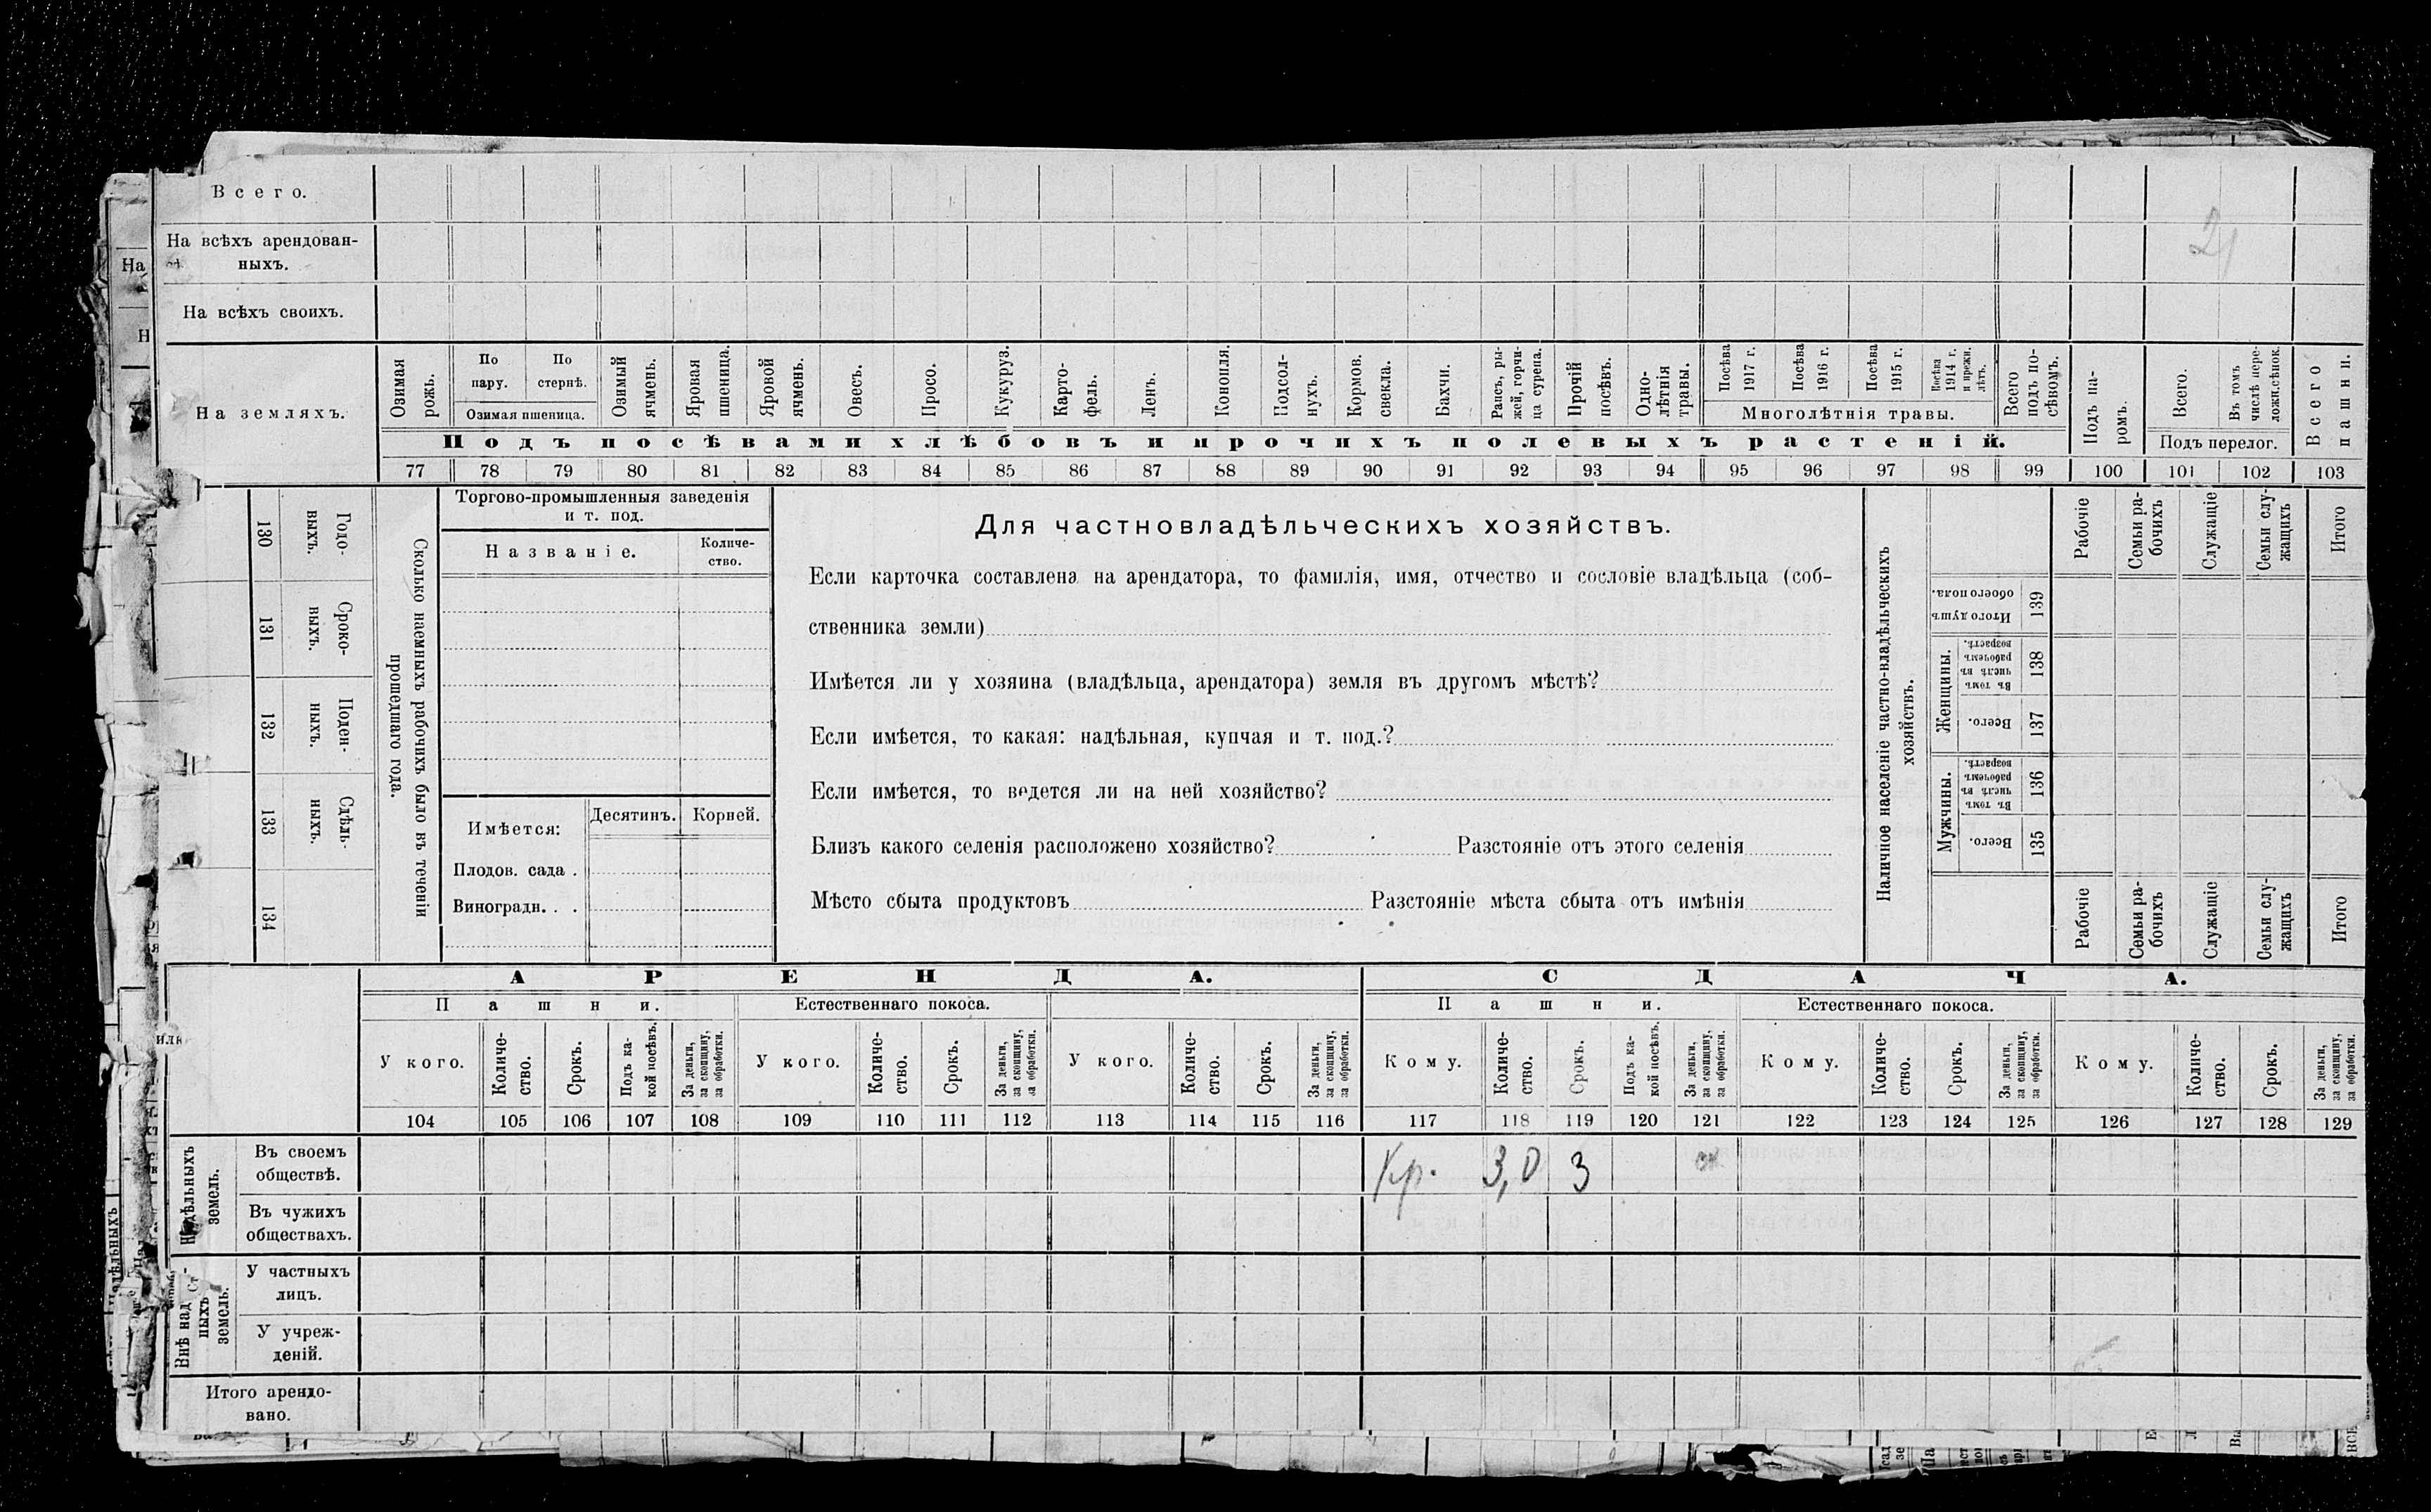 Всего.
На всѣхъ арендован-
ныхъ.
21
На всѣхъ своихъ.
На земляхъ.
Озимая рожь.
По пару.
По стернѣ.
Озимая пшеница.
Озимый ячмень.
Яровая пшеница.
Яровой ячмень.
Овесъ.
Просо.
Кукуруз.
Карто-
фель.
Ленъ.
Конопля.
Подсол-
нухъ.
Кормов.
свекла.
Бахчи.
Рапсъ, ры-
жей, горчи-
ца сурепа.
Прочій
посѣвъ.
Одно-
лѣтнія
травы.
Посѣва
1917 г.
Посѣва
1916 г.
Посѣва
1915 г.
Посѣва
1914 г.
и прежн.
лѣтъ.
Многолѣтнія травы.
Всего
подъ по-
сѣвомъ.
Подъ па-
ромъ.
Всего.
Въ томъ
числѣ пере-
ложн.сѣнок.
Подъ перелог.
Всего
пашни.
Подъ посѣвами хлѣбовъ и прочихъ полевыхъ растеній.
77 78 79 80 81 82 83 84 85 86 87 88 89 90 91 92 93 94 95 96 97 98 99 100 101 102 103
130
Годо-
выхъ.
131
Сроко-
выхъ.
132
Поден-
ныхъ.
133
Сдѣль-
ныхъ.
134
Сколько наемныхъ рабочихъ было въ теченіи
прошедшаго года.
Торгово-промышленныя заведенія
и т. под.
Названіе.
Количе-
ство.
Имѣется:
Десятинъ.
Корней.
Плодов. сада .
Виноградн. . .
Для частновладѣльческихъ хозяйствъ.
Если карточка составлена на арендатора, то фамилія, имя, отчество и сословіе владѣльца (соб-
ственника земли)
Имѣется ли у хозяина (владѣльца, арендатора) земля въ другомъ мѣстѣ?
Если имѣется, то какая: надѣльная, купчая и т. под.?
Если имѣется, то ведется ли на ней хозяйство?
Близъ какого селенія расположено хозяйство? Разстояніе отъ этого селенія
Мѣсто сбыта продуктовъ Разстояніе мѣста сбыта отъ имѣнія
Наличное населеніе частно-владѣльческихъ
хозяйствъ.
Рабочіе
Семьи ра-
бочихъ
Служащіе
Семьи слу-
жащихъ
Итого
Итого душъ
обоего пола.
139
Женщины.
Въ томъ
числѣ въ
рабочемъ
возрастѣ.
138
Всего.
137
Мужчины.
Въ томъ
числѣ въ
рабочемъ
возрастѣ.
136
Всего.
135
Рабочіе
Семьи ра-
бочихъ
Служащіе
Семьи слу-
жащихъ
Итого
АРЕНДА.
СДАЧА.
Пашни.
Естественнаго покоса.
Пашни.
Естественнаго покоса.
У кого.
Количе-
ство.
Срокъ.
Подъ ка-
кой посѣвъ.
За деньги,
за скопщину,
за обработки.
У кого.
Количе-
ство.
Срокъ.
За деньги,
за скопщину,
за обработки.
У кого.
Количе-
ство.
Срокъ.
За деньги,
за скопщину,
за обработки.
Кому.
Количе-
ство.
Срокъ.
Подъ ка-
кой посѣвъ.
За деньги,
за скопщину,
за обработки.
Кому.
Количе-
ство.
Срокъ.
За деньги,
за скопщину,
за обработки.
Кому.
Количе-
ство.
Срокъ.
За деньги,
за скопщину,
за обработки.
104 105 106 107 108 109 110 111 112 113 114 115 116 117 118 119 120 121 122 123 124 125 126 127 128 129
Надѣльныхъ
земель.
Въ своемъ
обществѣ.
Кр. 3,0 3 ск
Въ чужихъ
обществахъ.
Внѣ над
ныхъ
земель.
У частныхъ
лицъ.
У учреж-
деній.
Итого арендо-
вано.